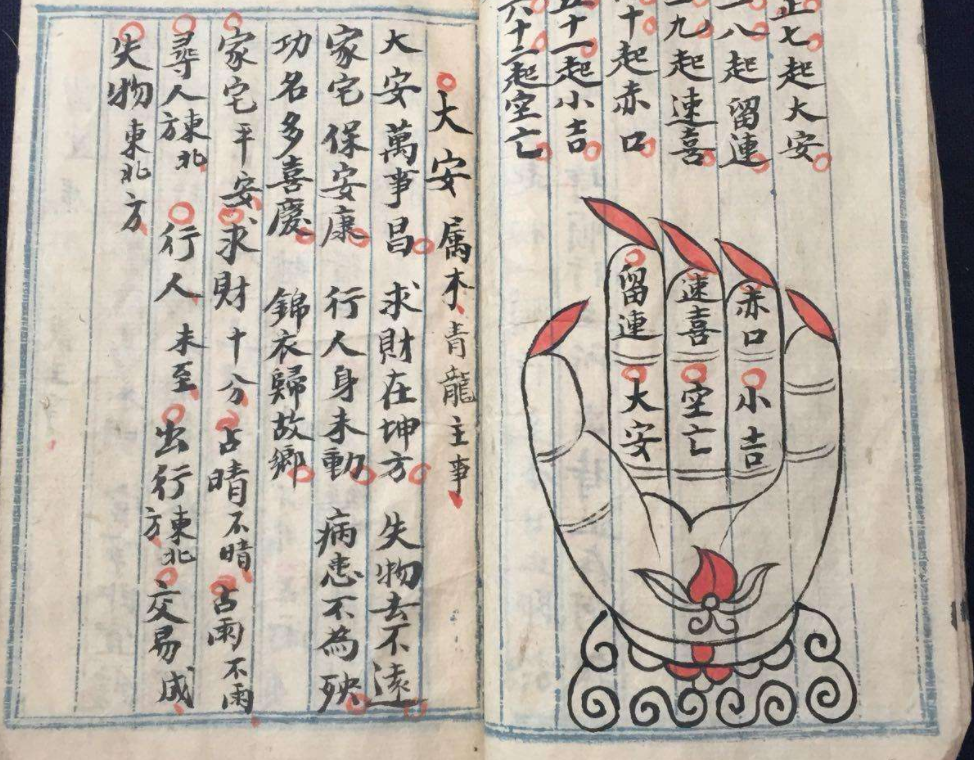 正七起大安
八起留連
九起速喜
十起赤口
五十一起小吉
六十二起空亡
赤口
速喜
留連
小吉
空亡
大安
大安 属木青龍主事
大安萬事昌 求財在坤方 失物去不遠
家宅保安康 行人身未動 病患不為殃
功名多喜慶 錦衣歸故鄉
家宅平安 求財十分 占晴不晴 占雨不雨
尋人東北方 行人未至 出行東北方 交易成
失物東北方